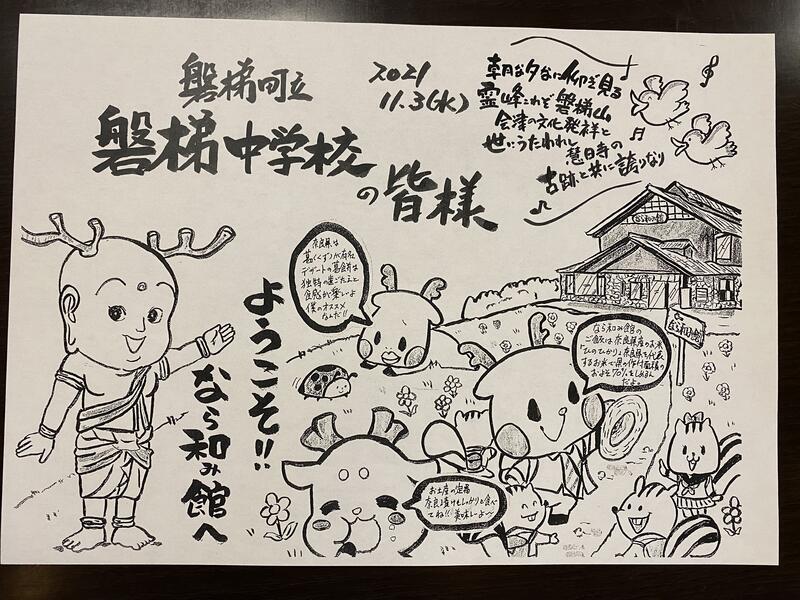 磐梯町立
磐梯中学校
の皆様
2021
11.3(水)
朝な夕なに仰ぎ見る
霊峰これぞ磐梯山
会津の文化発祥と
世にうたわれし慧日寺の
古跡と共に誇りなり
ようこそ!!
なら和み館へ
奈良県は
葛(くず)が有名
デザートの葛餅は
独特の歯ごたえと
食感が楽しいよ
僕のオススメ
なんだ!!
なら和み館
なら和み館
なら和み館の
ご飯は奈良県産のお米
「ひのひかり」奈良県を代表
するお米で県の作付面積の
およそ70%をしめるん
だよ。
お土産の定番
奈良漬けもしっかりと食べ
てね!!美味しーよ〜